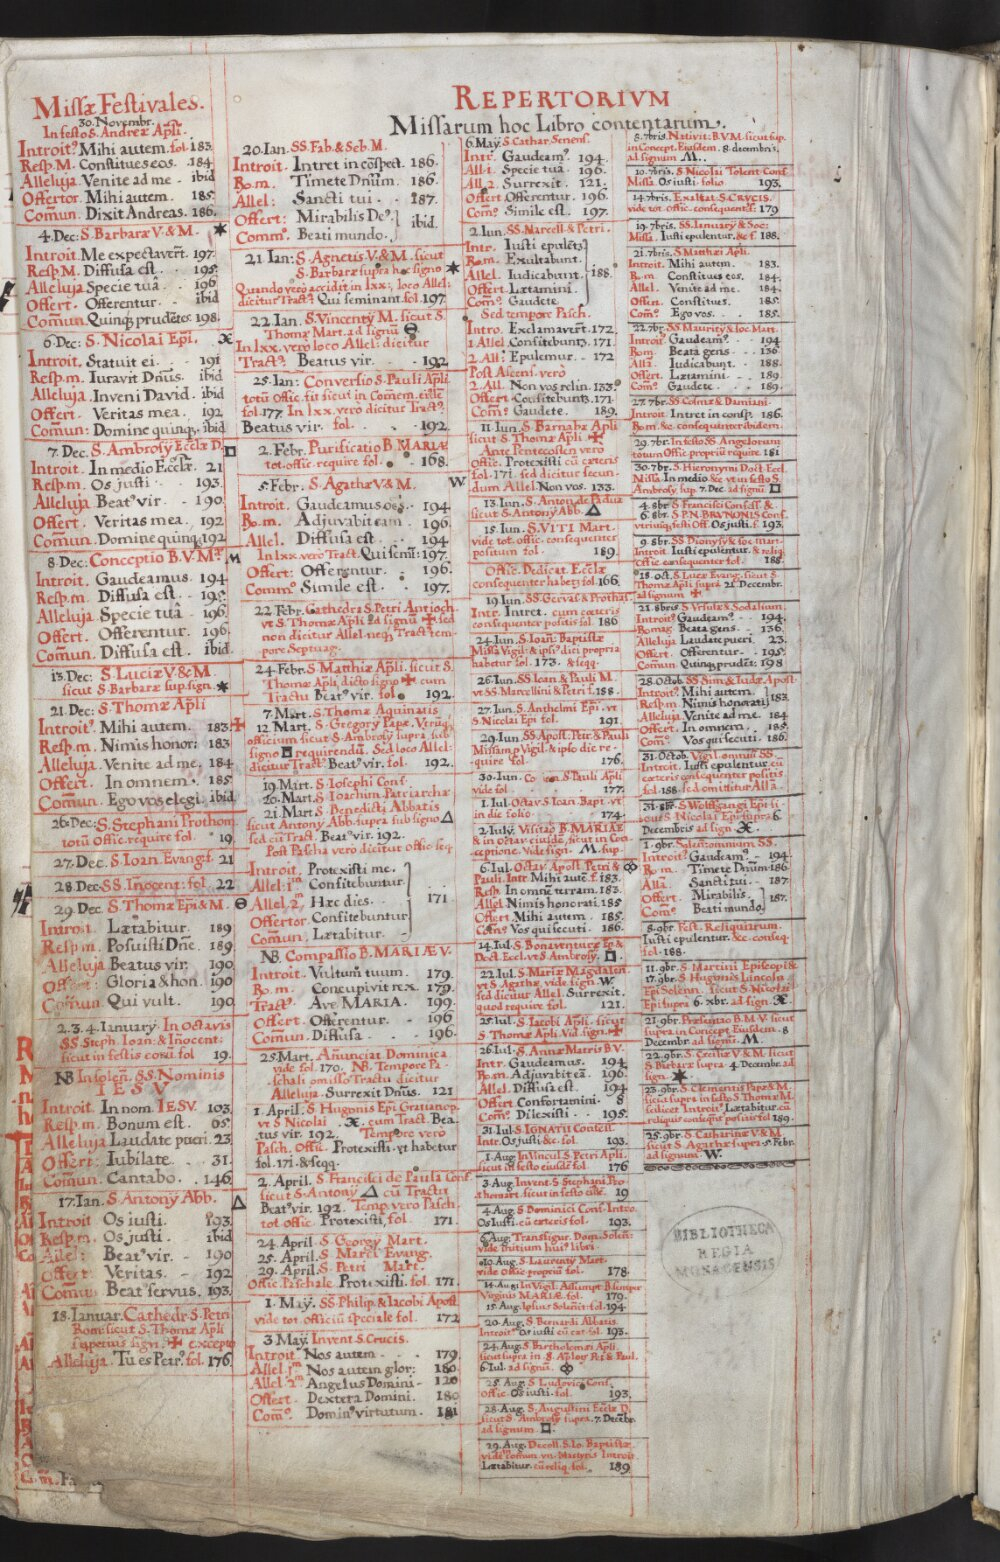 REPERTORIVM
Missarum hoc Libro contentarum.
Missæ Festivales.
30. Novembr.
In festo S. Andreæ Apli.
Introit9 Mihi autem. fol. 183
Resp. M. Constitues eos. 184
Alleluja Venite ad me. ibid
Offertor. Mihi autem. 185
Comun. Dixit Andreas. 186.
4. Dec: S. Barbaræ V. & M.
Introit. Me expectaverūt. 197
Resp. M. Diffusa est. 195
Alleluja Specie tuâ 196
Offert. Offerentur. ibid
Comun. Quinq3 prudētes 198.
6 Dec: S. Nicolai Epi.
Introit. Statuit ei. 191
Resp. m. Iuravit Dnus. ibid
Alleluja. Inveni David. ibid
Offert. Veritas mea. 192
Comun: Domine quinq3. ibid
7. Dec. S. Ambrosy Ecclæ D.
Introit. In medio Ecclæ. 21
Resp. m. Os justi 193.
Alleluja. Beat9 vir. 190.
Offert. Veritas mea. 192
Comun. Domine quinq3 192
8. Dec: Conceptio B.V.M.
Introit. Gaudeamus. 194
Resp. m. Diffusa est. 195
Alleluja Specie tuâ 196.
Offert. Offerentur. 196.
Comun. Diffusa est. ibid.
13. Dec: S. Luciæ V. & M.
sicut S. Barbaræ sup. sign.
21. Dec: S. Thomæ Apli
Introit9. Mihi autem. 183
Resp. m. Nimis honor: 183
Alleluja. Venite ad me. 184
Offert. In omnem. 185
Comun. Ego vos elegi. ibid
26. Dec: S. Stephani Prothom.
totū Offic. require fol. 19
27. Dec. S. Ioan. Evang. f. 21
28. Dec. SS. Inocent: fol. 22
29. Dec. S. Thomæ Epi & M.
Introit. Lætabitur. 189
Resp. m. Posuisti Dne. 189
Alleluja Beatus vir. 190
Offert: Gloria & hon. 190
Comun. Qui vult. 190
2. 3. 4. Ianuary. In Octavis
SS. Steph. Ioan: & Inocent:
sicut in festis corū. fol 19.
NB In solen. SS. Nominis
IESV
Introit. In nom. IESV. 103
Resp. m. Bonum est. 65
Alleluja Laudate pueri. 23
Offert: Iubilate. 31.
Comun. Cantabo. 146
17. Ian. S. Antony Abb.
Introit Os justi. 193.
Resp. m. Os justi. ibid
Allel: Beat9 vir. 190
Offert: Veritas. 192
Comun Beat9 servus. 193
18. Ianuar. Cathedr. S. Petri
Rom: sicut S. Thomæ Apli
superius sign. excepto
Alleluja. Tu es Petr9. fol. 176
20. Ian. SS. Fab. & Seb. M.
Introit. Intret in cōspect. 186.
Ro. m. Timete Dnūm. 186.
Allel: Sancti tui 187.
Offert: Mirabilis De9. ibid.
Comm9. Beati mundo.
21 Ian: S. Agnetis V. & M. sicut
S. Barbaræ supra hoc signo
Quando vero accidit in lxx:, loco Allel:
dicitur Tract9 Qui seminant. fol. 197
22. Ian. S. Vincenty M. sicut S.
Thomæ Mart. ad signū
In lxx. vero loco Allel: dicitur
Tract9. Beatus vir. 192
25. Ian: Conversio S. Pauli Apli
totū Offic. fit sicut in Comem. eiusde
fol. 177. In lxx. vero dicitur Tract9.
Beatus vir. fol. 192.
2. Febr. Purificatio B. MARIÆ
tot. offic. require fol. 168.
5. Febr. S. Agathæ V. & M. W.
Introit. Gaudeamus oēs. 194
Ro. m. Adjuvabit eam. 196
Allel. Diffusa est. 194
In lxx. vero Tract. Qui semi: 197.
Offert: Offerentur. 196.
Comm9 Simile est. 197.
22 Febr. Cathedra S. Petri Antioch.
vt S. Thomæ Apli ad signū sed
non dicitur Allel. neq3 Tract. tem-
pore Septuag.
24. Febr. S. Matthiæ Apli. sicut S.
Thomæ Apli dicto signo cum
Tractu Beat9 vir. fol. 192.
7. Mart. S. Thomæ Aquinatis
12. Mart. S. Gregory Papæ. Verūq3
officium sicut S. Ambrosy supra sub
signo requirendū. Sed loco Allel:
dicitur Tract9 Beat9 vir. fol. 192.
19. Mart. S. Iosephi Conf.
20. Mart. S. Ioachim Patriarchæ
21. Mart. S. Benedicti Abbatis
sicut Antony Abb. supra sub signo
sed cū Tract. Beat9 vir. 192.
Post Pascha vero dicitur offic. seq.
Introit. Protexisti me.
Allel: 1m Confitebuntur
Allel. 2m Hæc dies. 171
Offertor Confitebuntur
Comun. Lætabitur.
NB. Compassio B. MARIÆ V.
Introit. Vultum tuum. 179.
Ro. m. Concupivit rex. 179.
Tract9. Ave MARIA. 199.
Offert. Offerentur. 196
Comun. Diffusa 196.
25. Mart. Añunciat. Dominica
vide fol. 170. NB. Tempore Pa-
schali omisso Tractu dicitur
Alleluja. Surrexit Dnus. 121
1. April. S. Hugonis Epi Gratianop.
vt S. Nicolai cum Tract. Bea-
tus vir. 192. Tempore vero
Pasch. Offic. Protexisti. vt habetur
fol. 171. & seqq.
2. April. S. Francisci de Paula Conf.
sicut S. Antony cū Tractu
Beat9 vir. 192. Temp. vero Pasch.
tot. offic. Protexisti, fol. 171.
24. April. S. Georgy Mart.
25. April. S. Marci Evang.
29. April. S. Petri Mart.
Offic. Paschale Protexisti. fol. 171.
1. May. SS. Philip. & Iacobi Apost.
vide tot. officiū speciale fol. 172
3 May. Invent. S. Crucis.
Introit9 Nos autem 179
Allel. 1m Nos autem glor: 180
Allel. 2m Angelus Domini 120
Offert. Dextera Domini. 180
Com9. Domin9 virtutum. 181
6 May. S. Cathar. Senens.
Intr. Gaudeam9. 194.
All. 1. Specie tuâ 196.
All. 2. Surrexit. 121.
Offert Offerentur. 196.
Com9 Simile est. 197.
2. Iun. SS. Marcell. & Petri.
Intr. Iusti epulēt9
Ro. m. Exultabunt.
Allel. Iudicabunt. 188.
Offert. Lætamini
Com9. Gaudete.
Sed tempore Pasch.
Intro. Exclamaverūt. 172.
1 Allel Confitebunt9. 171.
2 All: Epulemur. 172
Post Ascens. vero
2. All. Non vos relin. 133.
Offert. Confitebunt9. 171
Com9. Gaudete. 189.
11. Iun. S. Barnabæ Apli
sicut S. Thomæ Apli.
Ante Pentecosten vero
Offic. Protexisti cū cæteris
fol. 171. sed dicitur secun-
dum Allel. Non vos. 133.
13. Iun. S. Anton. de Padua
sicut S. Antony Abb.
15. Iun. S. VITI Mart.
vide tot. offic. consequenter
positum fol. 189.
Offic. Dedicat. Ecclæ
consequenter habet9 fol. 166.
19 Iun. SS. Gervas. & Prothas.
Intr. Intret. cum cæteris
consequenter positis fol. 186
24. Iun. S. Ioan: Baptistæ
Missa Vigil. & ips9 diei propria
habetur fol. 173. & seqq.
26. Iun. SS. Ioan & Pauli M.
vt SS. Marcellini & Petri f. 188.
27. Iun. S. Anthelmi Epi. vt
S. Nicolai Epi fol. 191.
29. Iun. SS. Apost. Petr. & Pauli
Missam p Vigil. & ipso die re-
quire fol. 176.
30. Iun. S. Pauli Apli
vide fol. 177.
1. Iul. Octav. S. Ioan. Bapt. vt
in die folio 174
2. July. Visitatio B. MARIÆ
& in Octav. eiusde. sicut in Con-
ceptione. Vide sign. M. sup.
6. Iul. Octav. Apost. Petri &
Pauli. Intr. Mihi autē. f. 183.
Resp. In omnē terram. 183.
Allel. Nimis honorati. 185
Offert. Mihi autem. 185.
Com9. Vos qui secuti. 186.
14. Iul. S. Bonaventuræ Ep. &
Doct. Eccl. vt S. Ambrosy.
22. Iul. S. Mariæ Magdalen.
vt S. Agathæ, vide sign. W.
sed dicitur Allel. Surrexit.
quod require fol. 121.
25. Iul. S. Iacobi Apli. sicut
S. Thomæ Apli. Vid. sign.
26. Iul. S. Annæ Matris B V.
Intr. Gaudeamus. 194
Ro. m. Adjuvabit eā. 196.
Allel. Diffusa est. 194
Offert Confortamini. 8
Com9. Dilexisti. 195.
31. Iul. S. IGNATII Confess.
Intr. Os justi. &c. fol. 193.
1. Aug. In Vincul. S. Petri Apli.
sicut in festo eiusdē fol. 176
3. Aug. Invent. S. Stephani Pro-
thomart. sicut in festo eiusdē. 19
4. Aug. S. Dominici Conf. Intro.
Os justi. cū cæteris fol. 193.
6. Aug. Transfigur. Dom. Solen:
vide initium hui9 libri.
10. Aug. S. Laurenty Mart.
vide Offic. propriū fol. 178.
14. Aug. In Vigil. Assumpt. B. semper
Virginis MARIÆ fol. 179.
15. Aug. Ipsius Solenit: fol. 194
20. Aug. S. Bernardi Abbatis.
Introit9 Os justi cū cæt. fol. 193.
24. Aug. S. Bartholomæi Apli.
sicut supra in 8. Aplor. Pet. & Paul.
6 Iul. ad signū.
25. Aug. S. Ludovici Conf.
Offic. Os justi. fol. 193.
28. Aug. S. Augustini Ecclæ D.
sicut S. Ambrosy supra. 7. Decēbr.
ad signum.
29. Aug. Decoll. S. Io. Baptistæ
vide comun. vn. Martyris Introit.
Lætabitur. cū reliq. fol. 189
8. 7bris. Nativit: B.V.M. sicut sup.
in Concept. Eiusdem. 8. decembris.
ad signum M.
10. 7bris. S. Nicolai Tolent. Conf.
Missa Os justi. folio 193.
14. 7bris. Exaltat. S. CRUCIS.
vide tot. offic. consequent. f: 179
19. 7bris. SS. Ianuary & Soc:
Missa. Iusti epulentur. &c. f. 188.
21. 7bris. S. Matthæi Apli.
Introit. Mihi autem 183.
Ro. m Constitues eos. 184.
Allel. Venite ad me. 184.
Offert. Constitues. 185.
Com9. Ego vos. 185.
22. 7br. SS. Maurity & Soc. Mart.
Introit9 Gaudeam9. 194
Rom. Beata gens 136
Alla. Iudicabunt. 188
Offert. Lætamini 189
Com9. Gaudete 189.
27. 7br. SS Cosmæ & Damiani.
Introit. Intret in consp. 186.
Ro. m. &c. consequenter ibidem.
29. 7br. In festo SS. Angelorum
totum Offic. propriū require. 181
30. 7br. S. Hieronymi Doct. Eccl.
Missa In medio &c. vt in festo S.
Ambrosy sup. 7. Dec. ad signū.
4. 8br. S. Francisci Confess. &
6. 8br. S. P. N. BRVNONIS Conf.
vtriusq3 festi Off. Os justi. f. 193.
9. 8br. SS Dionysy & soc. mart.
Introit Iusti epulentur. & reliq.
Offic. consequenter fol. 188.
18. oct. S. Lucæ Evang. sicut S.
Thomæ Apli supra 21. Decembr.
ad signum
21. 8bris S. Vrsulæ & Sodalium.
Introit9 Gaudeam9. 194.
Romag. Beata gens 136.
Alleluja Laudate pueri. 23.
Offert. Offerentur. 195.
Comun Quinq3 prudēt: 198
28. Octob. SS Sim & Iudæ Apost.
Introit9. Mihi autem.
Resp. m. Nimis honorati 183
Alleluja. Venite ad me. 184
Offert. In omnem. 185.
Com9. Vos qui secuti. 186.
31. Octob. Vigil. omniū SS.
Introit. Iusti epulentur. cū
cæteris consequenter positis
fol. 188. sed omittitur Alla.
31. 8br. S. Wolffgangi Epi si-
cut S. Nicolai Epi supra 6
Decembris ad sign.
1. 9br. Solen. omnium SS.
Introit9 Gaudeam9 194.
Ro. m. Timete Dnum. 186
Alla. Sancti tui 187.
Offert. Mirabilis 187.
Com9. Beati mundo
8. 9br. Fest. Reliquiarum.
Iusti epulentur. &c. conseq.
fol. 188.
11. 9br. S. Martini Episcopi &
17. 9br. S. Hugonis Lincoln.
Epi Solenn. sicut S. Nicolai
Epi supra 6. xbr. ad sign.
21. 9br. Præsentatio B. M. V. sicut
supra in Concept. Eiusdem. 8
Decembr. ad signum. M.
22. 9br. S. Ceciliæ V & M. sicut
S. Barbaræ supra 4. Decembr. ad
sign.
23. 9br. S. Clementis Papæ & M.
sicut supra in festo S. Thomæ M.
scilicet Introit9 Lætabitur. cū
reliquis consequēt. positis fol 189.
25. 9br. S. Catharinæ V & M.
sicut S. Agathæ supra 5. Febr.
ad signum W.
BIBLIOTHECA
REGIA
MONACENSIS